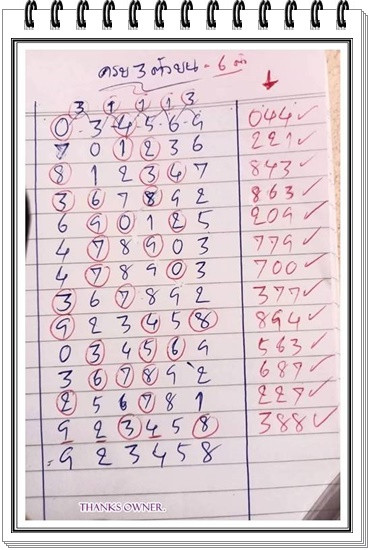 ครบ 3 ตัวบน - 6 ตัว
3 1 1 1 3
0 - 3 - 4 - 5 - 6 - 9 044 ✓
7 0 1 2 3 6 221 ✓
8 1 2 3 4 7 843 ✓
3 6 7 8 9 2 863 ✓
6 9 0 1 2 5 209 ✓
4 7 8 9 0 3 779 ✓
4 7 8 9 0 3 700 ✓
3 6 7 8 9 2 377 ✓
9 2 3 4 5 8 894 ✓
0 3 4 5 6 9 563 ✓
3 6 7 8 9 2 687 ✓
2 5 6 7 8 1 227 ✓
9 2 3 4 5 8 388 ✓
9 2 3 4 5 8
THANKS OWNER.